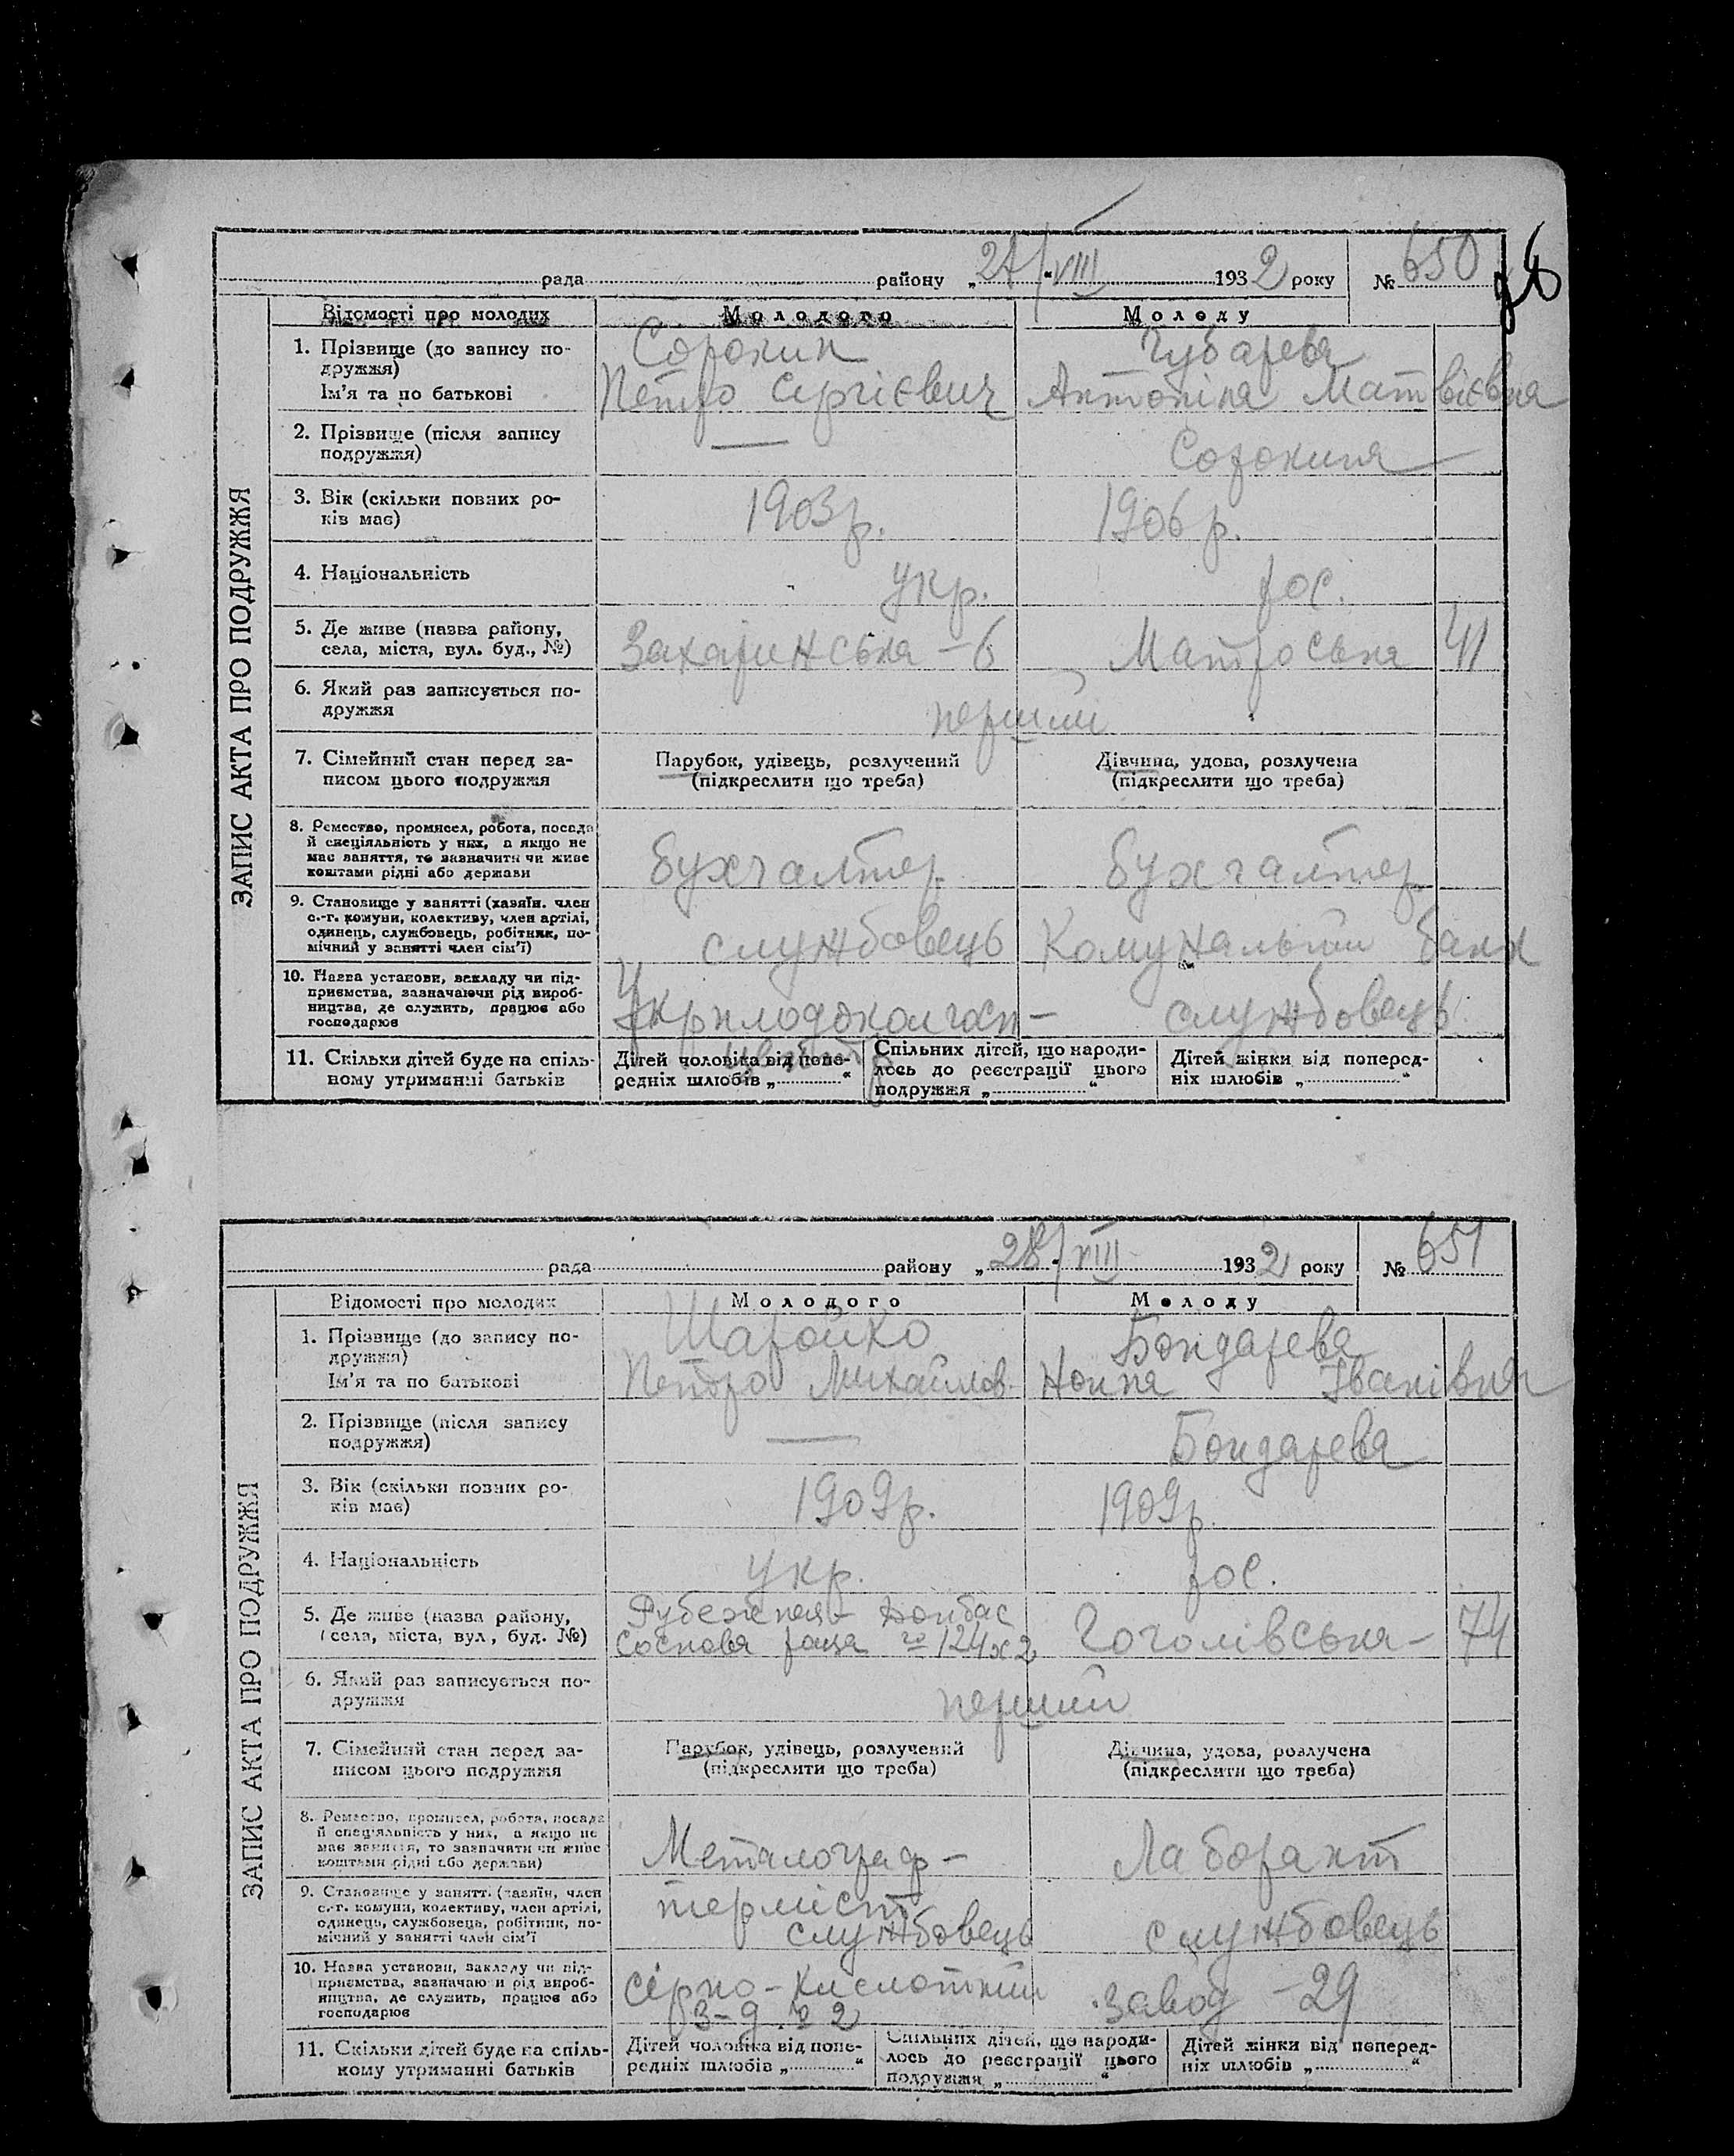 рада району „27/VIII 1932 року № 650
78
ЗАПИС АКТА ПРО ПОДРУЖЖЯ
Відомості про молодих Молодого Молоду
1. Прізвище (до запису по- Сорокин Губарева
дружжя)
Ім'я та по батькові Петро Сергієвич Антоніна Матвієвна
2. Прізвище (після запису —
подружжя) Сорокина
3. Вік (скільки повних ро- 1903 р. 1906 р.
ків має)
4. Національність укр. рос.
5. Де живе (назва району,
села, міста, вул. буд., №) Захаринська - 6 Матроська 41
6. Який раз записується по-
дружжя перший
7. Сімейний стан перед за- Парубок, удівець, розлучений Дівчина, удова, розлучена
писом цього подружжя (підкреслити що треба) (підкреслити що треба)
8. Ремество, промисел, робота, посада
й спеціяльність у них, а якщо не
має заняття, то зазначити чи живе бухгалтер бухгалтер
коштами рідні або держави
9. Становище у занятті (хазяїн, член
с.-г. комуни, колективу, член артілі,
одинець, службовець, робітник, по- службовець Комунальний банк
мічний у занятті член сім'ї)
10. Назва установи, закладу чи під-
приємства, зазначаючи рід вироб-
ництва, де служить, працює або Укрплодоколгосп- службовець
господарює
центр
11. Скільки дітей буде на спіль- Дітей чоловіка від попе- Спільних дітей, що народи- Дітей жінки від поперед-
ному утриманні батьків редніх шлюбів „ “ лось до реєстрації цього ніх шлюбів „ “
подружжя „ “
рада району „28/VIII 1932 року № 651
ЗАПИС АКТА ПРО ПОДРУЖЖЯ
Відомості про молодих Молодого Молоду
1. Прізвище (до запису по- Шаройко Бондарева
дружжя)
Ім'я та по батькові Петро Михайлов. Нонна Іванівна
2. Прізвище (після запису —
подружжя) Бондарева
3. Вік (скільки повних ро- 1909 р. 1909 р.
ків має)
4. Національність укр. рос.
5. Де живе (назва району, Рубежная - Донбас
села, міста, вул, буд. №) Соснова роща 124 х 2 Гоголівська - 74
6. Який раз записується по-
дружжя перший
7. Сімейний стан перед за- Парубок, удівець, розлучений Дівчина, удова, розлучена
писом цього подружжя (підкреслити що треба) (підкреслити що треба)
8. Ремество, промисел, робота, посада
й спеціяльність у них, а якщо не
має заняття, то зазначити чи живе Металограф - Лаборант
коштами рідні або держави)
9. Становище у занятт. (хазяїн, член
с.-г. комуни, колективу, член артілі, терміст
одинець, службовець, робітник, по- службовець службовець
мічний у занятті член сім'ї
10. Назва установи, закладу чи під-
приємства, зазначаючи рід вироб- сірно-кислотний
ництва, де служить, працює або завод - 29
господарює з-д № 2
11. Скільки дітей буде на спіль- Дітей чоловіка від попе- Спільних дітей, що народи- Дітей жінки від поперед-
кому утриманні батьків редніх шлюбів „ “ лось до реєстрації цього ніх шлюбів „ “
подружжя „ “